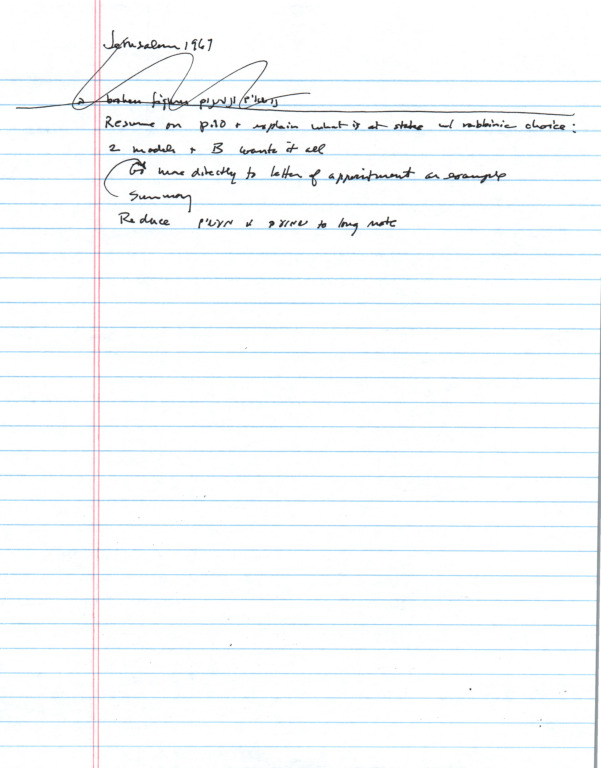 Jerusalem 1967
broken figures
Resume on p.10 + explain what is at stake w/ rabbinic choice:
2 models + B wants it all
Get more directly to letter of appointment as example
Summary
Reduce to long note